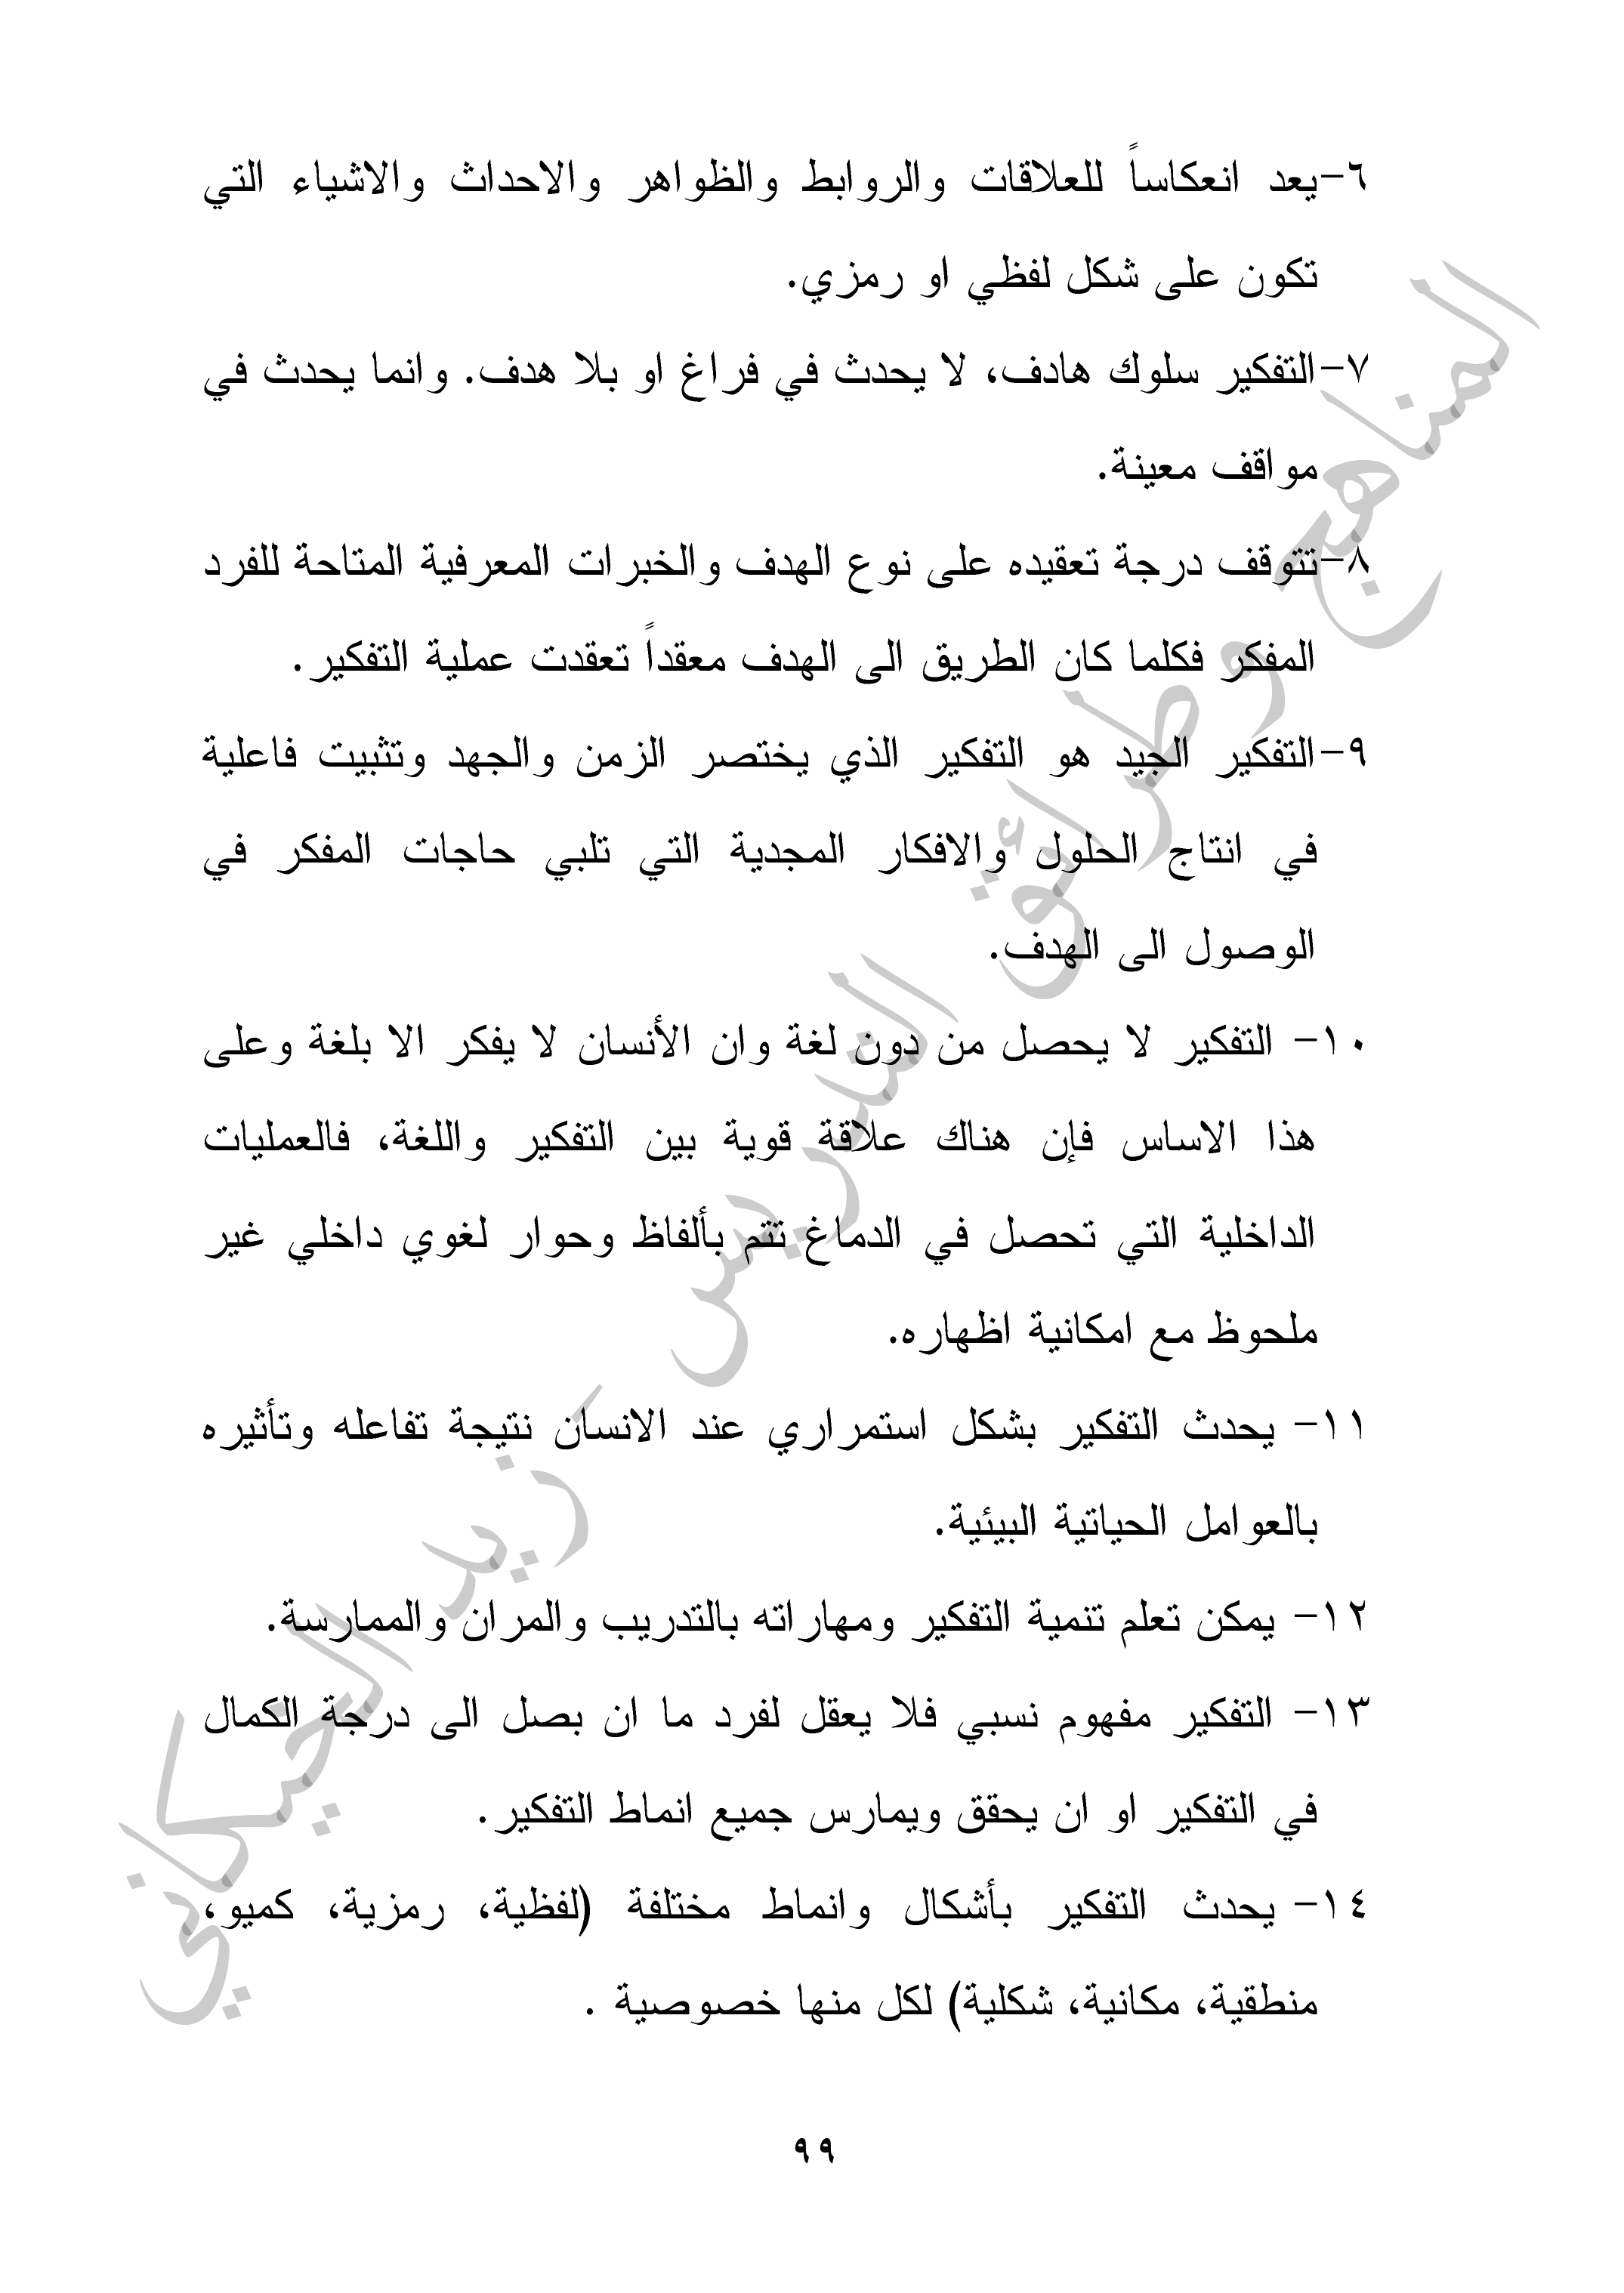 ٦-يعد انعكاساً للعلاقات والروابط والظواهر والاحداث والاشياء التي
تكون على شكل لفظي او رمزي.
٧-التفكير سلوك هادف، لا يحدث في فراغ او بلا هدف. وانما يحدث في
مواقف معينة.
٨-تتوقف درجة تعقيده على نوع الهدف والخبرات المعرفية المتاحة للفرد
المفكر فكلما كان الطريق الى الهدف معقداً تعقدت عملية التفكير.
٩-التفكير الجيد هو التفكير الذي يختصر الزمن والجهد وتثبيت فاعلية
في انتاج الحلول والافكار المجدية التي تلبي حاجات المفكر في
الوصول الى الهدف.
١٠- التفكير لا يحصل من دون لغة وان الأنسان لا يفكر الا بلغة وعلى
هذا الاساس فإن هناك علاقة قوية بين التفكير واللغة، فالعمليات
الداخلية التي تحصل في الدماغ تتم بألفاظ وحوار لغوي داخلي غير
ملحوظ مع امكانية اظهاره.
١١- يحدث التفكير بشكل استمراري عند الانسان نتيجة تفاعله وتأثيره
بالعوامل الحياتية البيئية.
١٢- يمكن تعلم تنمية التفكير ومهاراته بالتدريب والمران والممارسة.
١٣- التفكير مفهوم نسبي فلا يعقل لفرد ما ان بصل الى درجة الكمال
في التفكير او ان يحقق ويمارس جميع انماط التفكير.
١٤- يحدث التفكير بأشكال وانماط مختلفة (لفظية، رمزية، كميو،
منطقية، مكانية، شكلية) لكل منها خصوصية .
٩٩
المناهج وطرائق التدريس - زيد الخيكاني